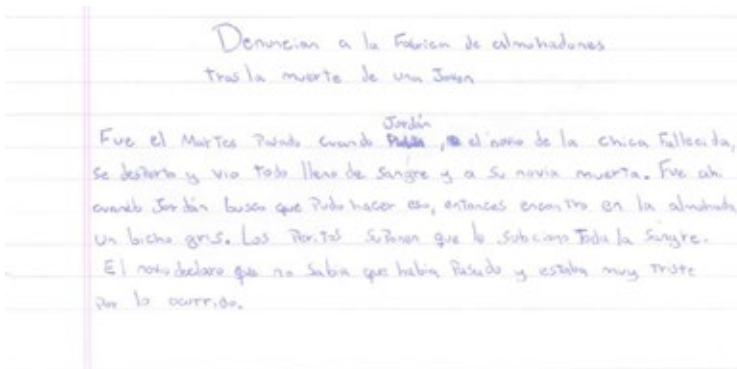 Denuncian a la Fabrica de almohadones
tras la muerte de una Joven
Jordán
Fue el Martes Pasado cuando Pablo, el novio de la chica Fallecida,
se desperto y vio todo lleno de sangre y a su novia muerta. Fue ahi
cuando Jordán busco que Pudo hacer eso, entonces encontro en la almohada
un bicho gris. Los Peritos suponen que le subciono Toda la sangre.
El novio declaro que no sabia que habia Pasado y estaba muy triste
por lo ocurrido.